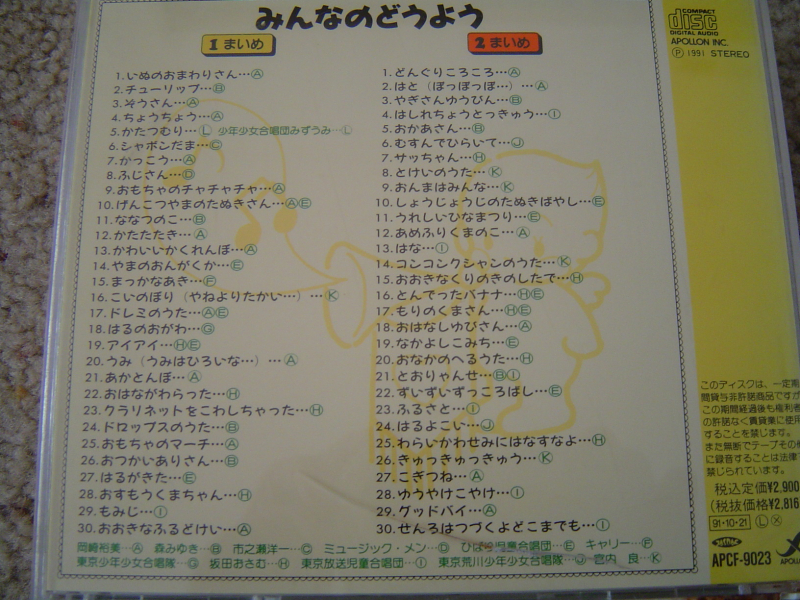 みんなのどうよう
1 まいめ
1.いぬのおまわりさん…Ⓐ
2.チューリップ…Ⓑ
3.ぞうさん…Ⓐ
4.ちょうちょう…Ⓐ
5.かたつむり…Ⓛ 少年少女合唱団みずうみ…Ⓛ
6.シャボンだま…Ⓒ
7.かっこう…Ⓐ
8.ふじさん…Ⓓ
9.おもちゃのチャチャチャ…Ⓐ
10.げんこつやまのたぬきさん…ⒶⒺ
11.ななつのこ…Ⓑ
12.かたたたき…Ⓐ
13.かわいいかくれんぼ…Ⓐ
14.やまのおんがくか…Ⓔ
15.まっかなあき…Ⓕ
16.こいのぼり（やねよりたかい…）…Ⓚ
17.ドレミのうた…ⒶⒺ
18.はるのおがわ…Ⓖ
19.アイアイ…ⒽⒺ
20.うみ（うみはひろいな…）…Ⓐ
21.あかとんぼ…Ⓐ
22.おはながわらった…Ⓗ
23.クラリネットをこわしちゃった…Ⓗ
24.ドロップスのうた…Ⓑ
25.おもちゃのマーチ…Ⓐ
26.おつかいありさん…Ⓑ
27.はるがきた…Ⓔ
28.おすもうくまちゃん…Ⓗ
29.もみじ…Ⓘ
30.おおきなふるどけい…Ⓐ
2 まいめ
1.どんぐりころころ…Ⓐ
2.はと（ぽっぽっぽ…）…Ⓐ
3.やぎさんゆうびん…Ⓑ
4.はしれちょうとっきゅう…Ⓘ
5.おかあさん…Ⓑ
6.むすんでひらいて…Ⓙ
7.サッちゃん…Ⓗ
8.とけいのうた…Ⓚ
9.おんまはみんな…Ⓚ
10.しょうじょうじのたぬきばやし…Ⓔ
11.うれしいひなまつり…Ⓔ
12.あめふりくまのこ…Ⓐ
13.はな…Ⓘ
14.コンコンクシャンのうた…Ⓚ
15.おおきなくりのきのしたで…Ⓗ
16.とんでったバナナ…ⒽⒺ
17.もりのくまさん…ⒽⒺ
18.おはなしゆびさん…Ⓐ
19.なかよしこみち…Ⓔ
20.おなかのへるうた…Ⓗ
21.とおりゃんせ…ⒷⒾ
22.ずいずいずっころばし…Ⓔ
23.ふるさと…Ⓘ
24.はるよこい…Ⓙ
25.わらいかわせみにはなすなよ…Ⓗ
26.きゅっきゅっきゅう…Ⓚ
27.こぎつね…Ⓐ
28.ゆうやけこやけ…Ⓘ
29.グッドバイ…Ⓐ
30.せんろはつづくよどこまでも…Ⓘ
岡崎裕美…Ⓐ 森みゆき…Ⓑ 市之瀬洋一…Ⓒ ミュージック・メン…Ⓓ ひばり児童合唱団…Ⓔ キャリー…Ⓕ
東京少年少女合唱隊…Ⓖ 坂田おさむ…Ⓗ 東京放送児童合唱団…Ⓘ 東京荒川少年少女合唱隊…Ⓙ 宮内 良…Ⓚ
COMPACT
disc
DIGITAL AUDIO
APOLLON INC.
Ⓟ 1991 STEREO
このディスクは、一定期
間貸与非許諾商品ですが
この期間経過後も権利者
の許諾なく賃貸業に使用
することを禁じます。
また無断でテープその他
に録音することは法律で
禁じられています。
税込定価¥2,900
(税抜価格¥2,816
91・10・21 Ⓛ Ⓧ
APCF-9023